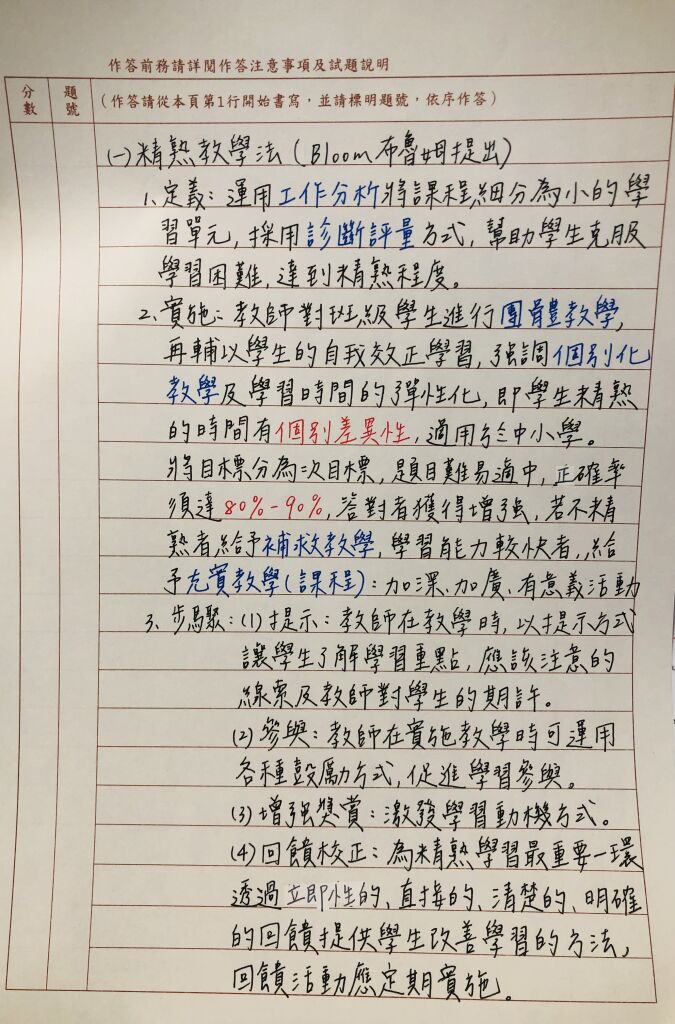 作答前務請詳閱作答注意事項及試題說明
分數
題號
(作答請從本頁第1行開始書寫，並請標明題號，依序作答)
(一)精熟教學法(Bloom布魯姆提出)
1、定義：運用工作分析將課程細分為小的學
習單元，採用診斷評量方式，幫助學生克服
學習困難，達到精熟程度。
2、實施：教師對班級學生進行團體教學，
再輔以學生的自我效正學習，強調個別化
教學及學習時間的彈性化，即學生精熟
的時間有個別差異性，適用於中小學。
將目標分為次目標，題目難易適中，正確率
須達80%-90%，答對者獲得增強，若不精
熟者給予補救教學，學習能力較快者，給
予充實教學(課程)：加深、加廣、有意義活動
3、步驟：(1)提示：教師在教學時，以提示方式
讓學生了解學習重點，應該注意的
線索及教師對學生的期許。
(2)參與：教師在實施教學時可運用
各種鼓勵方式，促進學習參與。
(3)增強獎賞：激發學習動機方式。
(4)回饋校正：為精熟學習最重要一環
透過立即性的、直接的、清楚的、明確
的回饋提供學生改善學習的方法，
回饋活動應定期實施。